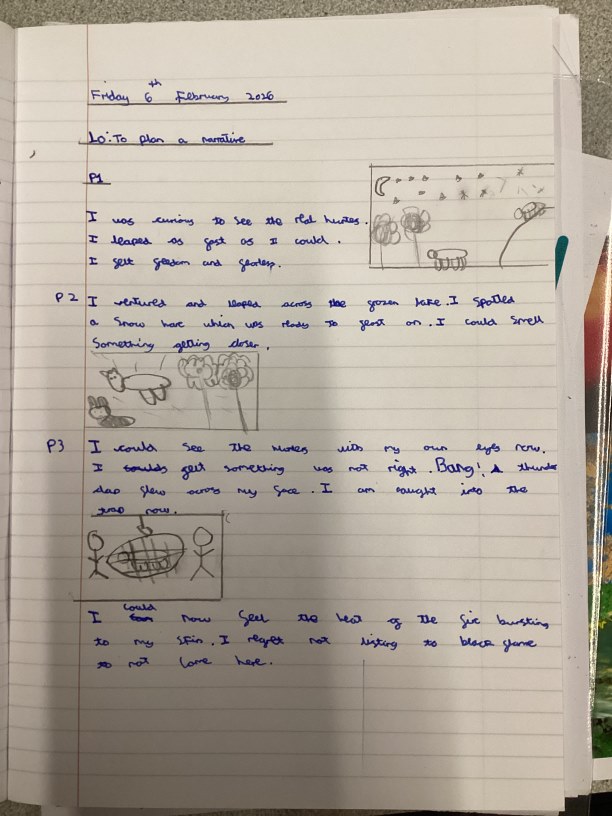 Friday 6th February 2026
Lo: To plan a narrative
P1
I was curious to see the red huntes.
I leaped as fast as I could.
I felt feadom and fearless.
P2 I ventured and leaped across the frozen lake. I spotled
a snow hare which was ready to feast on. I could smell
Something getting closer.
P3 I could see the huntes with my own eyes now.
I felt something was not right. Bang! A thunder
clap flew across my face. I am caught into the
trap now.
I could now feel the heat of the fire bursting
to my skin. I regret not listing to black flame
to not come here.